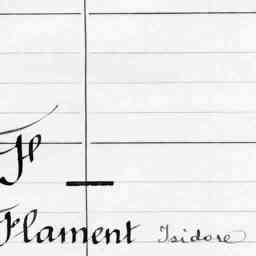 Fl
Flament Isidore